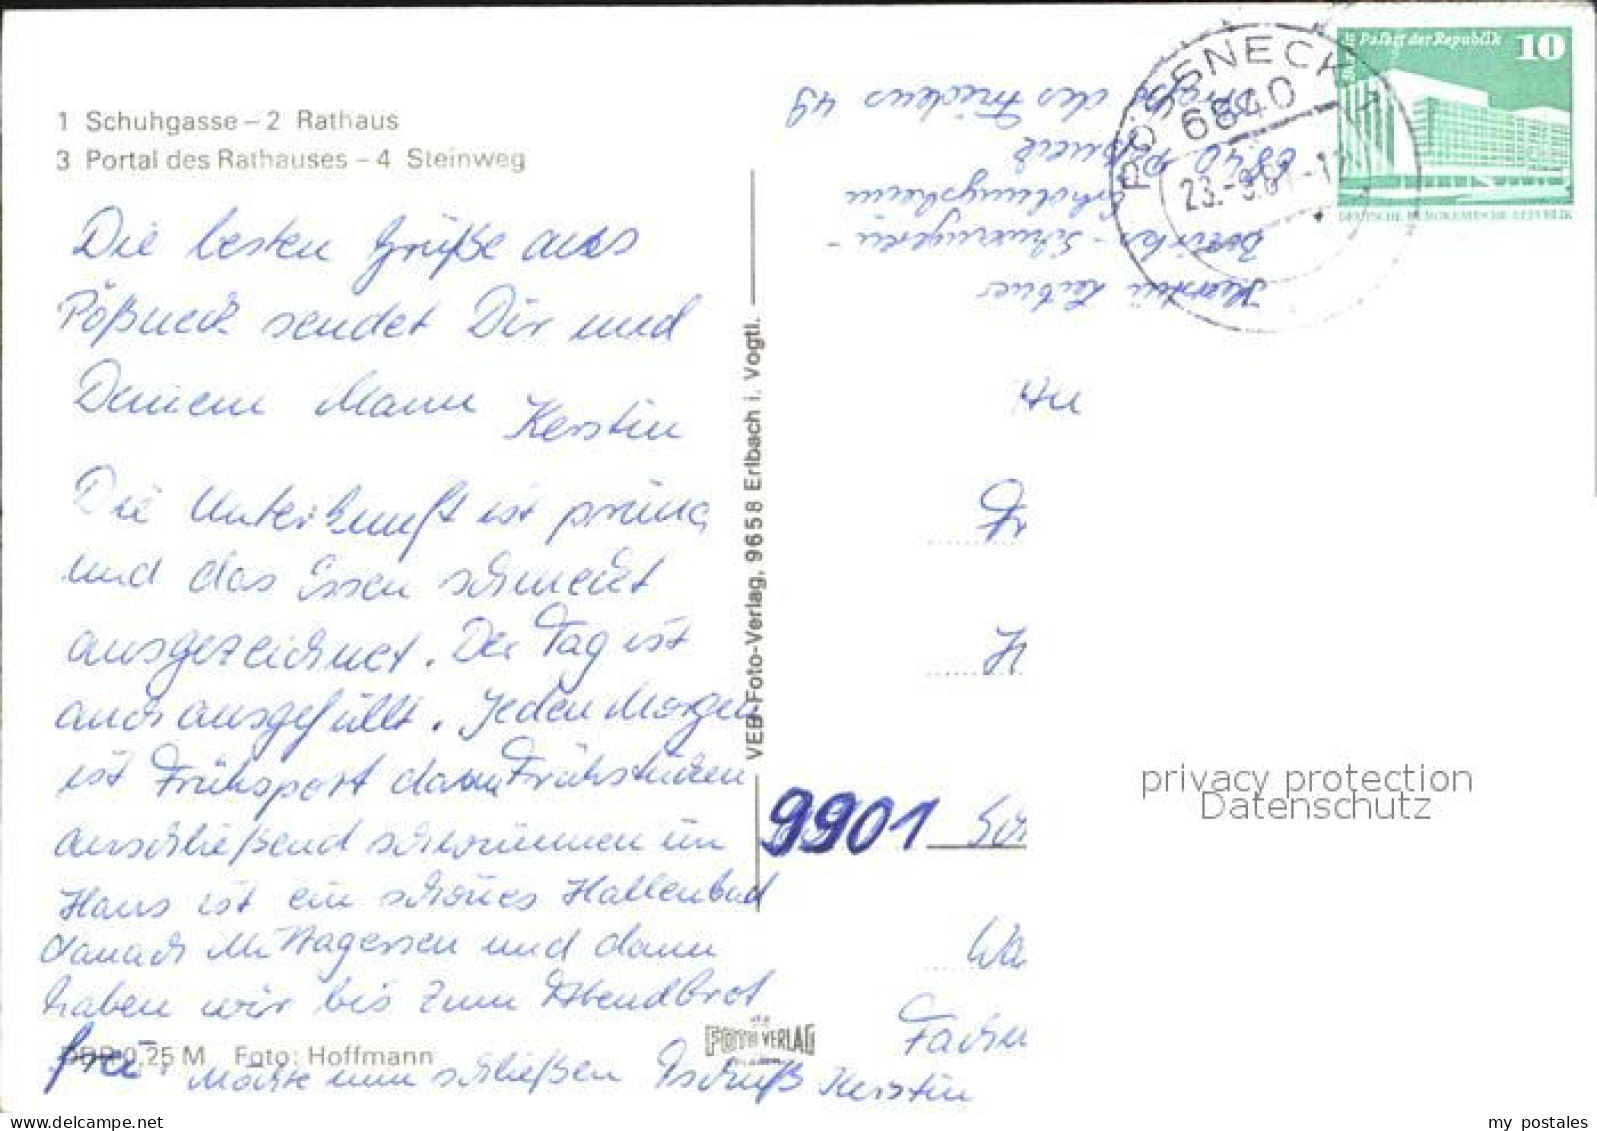 1 Schuhgasse – 2 Rathaus
3 Portal des Rathauses – 4 Steinweg
Die besten Grüße aus
Pößneck sendet Dir und
Deinem Mann Kerstin
Die Unterkunft ist prima
und das Essen schmeckt
ausgezeichnet. Der Tag ist
auch ausgefüllt. Jeden Morgen
ist Frühsport dann Frühstücken
anschließend schwimmen im
Haus ist ein schönes Hallenbad
danach Mittagessen und dann
haben wir bis zum Abendbrot
frei. Möchte nun schließen Tschüß Kerstin
DDR 0,25 M Foto: Hoffmann
VEB-Foto-Verlag, 9658 Erlbach i. Vogtl.
FOTO VERLAG
Kerstin
Bezirks-
Erholungsheim
6840 Pößneck
Straße des Friedens 49
PÖSSNECK 1
6840
23.-9.81-12
Palast der Republik 10
DEUTSCHE DEMOKRATISCHE REPUBLIK
An
Fr
H
9901 Sch
Wa
privacy protection
Datenschutz
www.delcampe.net
my_postales